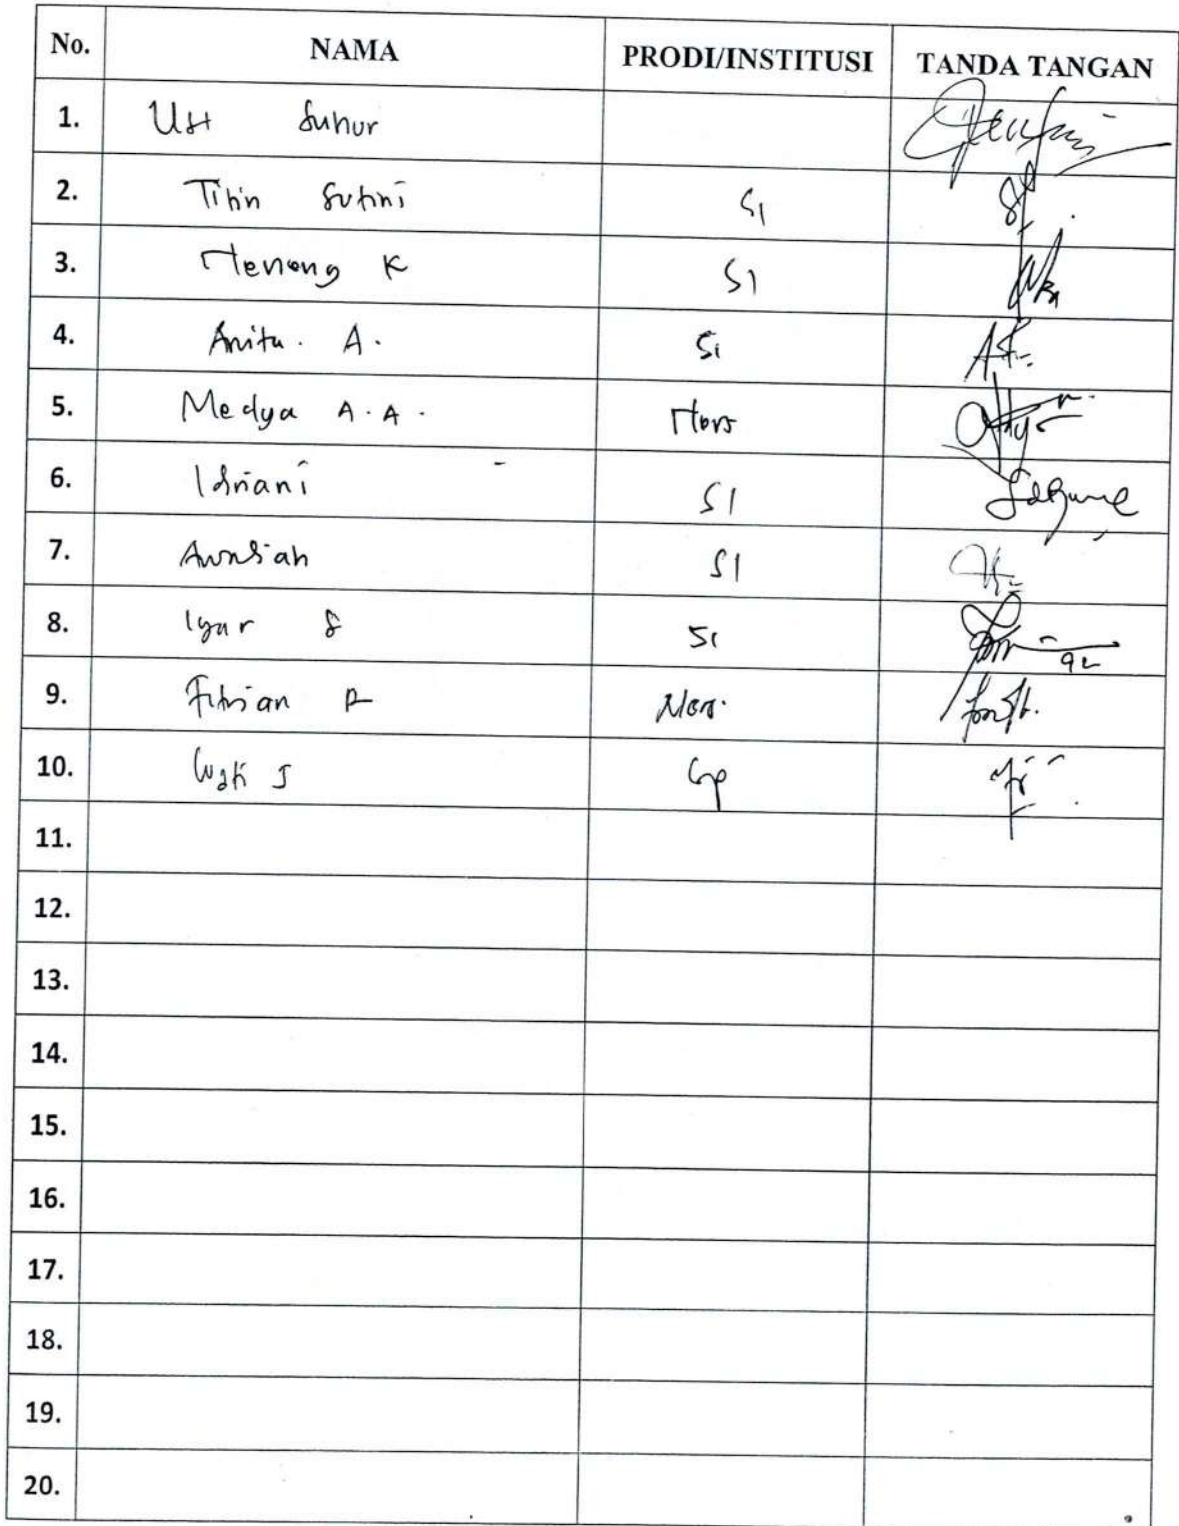 No. NAMA PRODI/INSTITUSI TANDA TANGAN
1. Suhur
2. Titin Sutini S1
3. K S1
4. Anita. A. S1
5. Medya A.A. Ners
6. Idriani S1
7. Awaliah S1
8. Iyar S S1
9. Fitrian R Ners.
10.
11.
12.
13.
14.
15.
16.
17.
18.
19.
20.